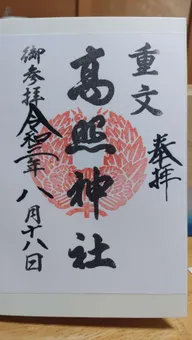 奉拝
重文
高照神社
令和二年八月十八日
御参拝